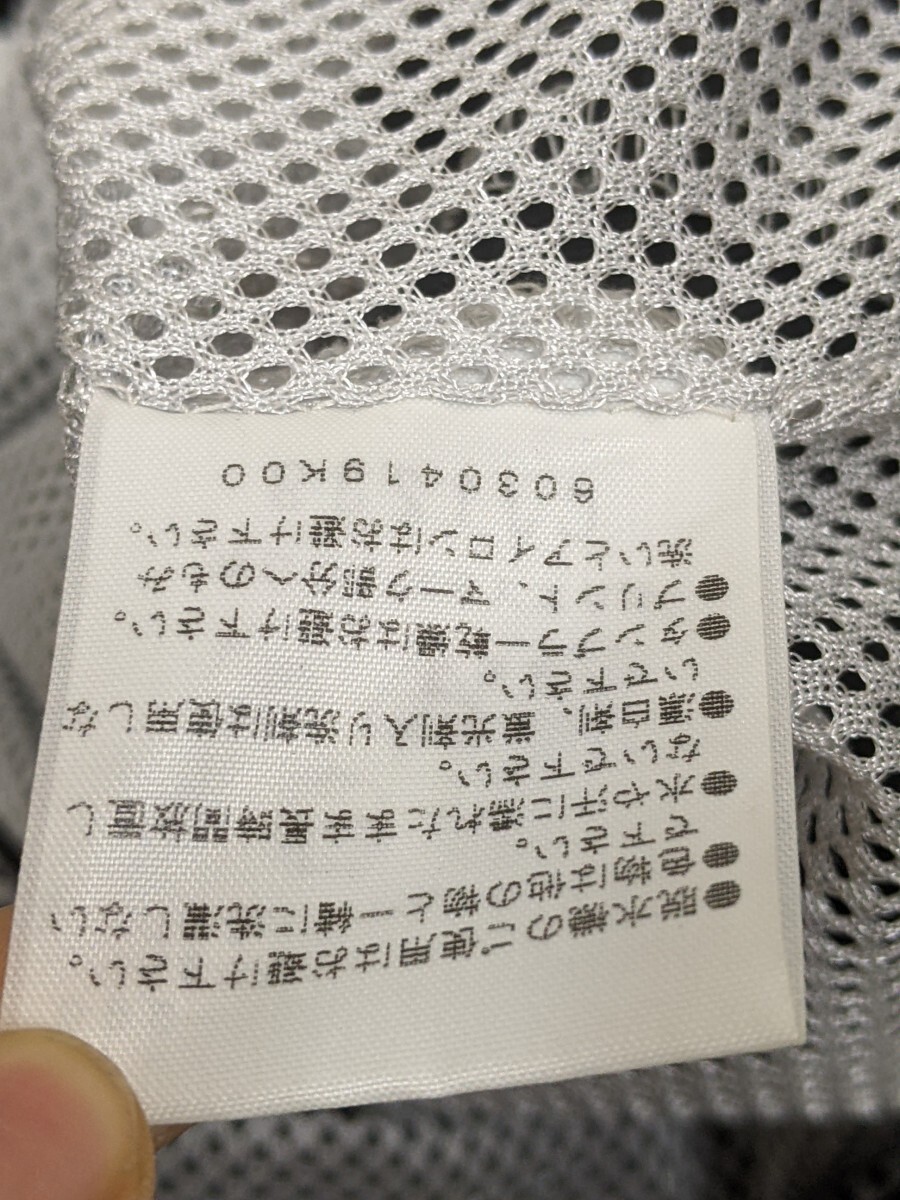 ●脱水機のご使用はお避け下さい。
●色物は他の物と一緒に洗濯しない
で下さい。
●水や汗に濡れたまま長時間放置し
ないで下さい。
●漂白剤、蛍光剤入り洗剤は使用しな
いで下さい。
●タンブラー乾燥はお避け下さい。
●プリント、マーク部分へのもみ
洗いとアイロンはお避け下さい。
6030419K00